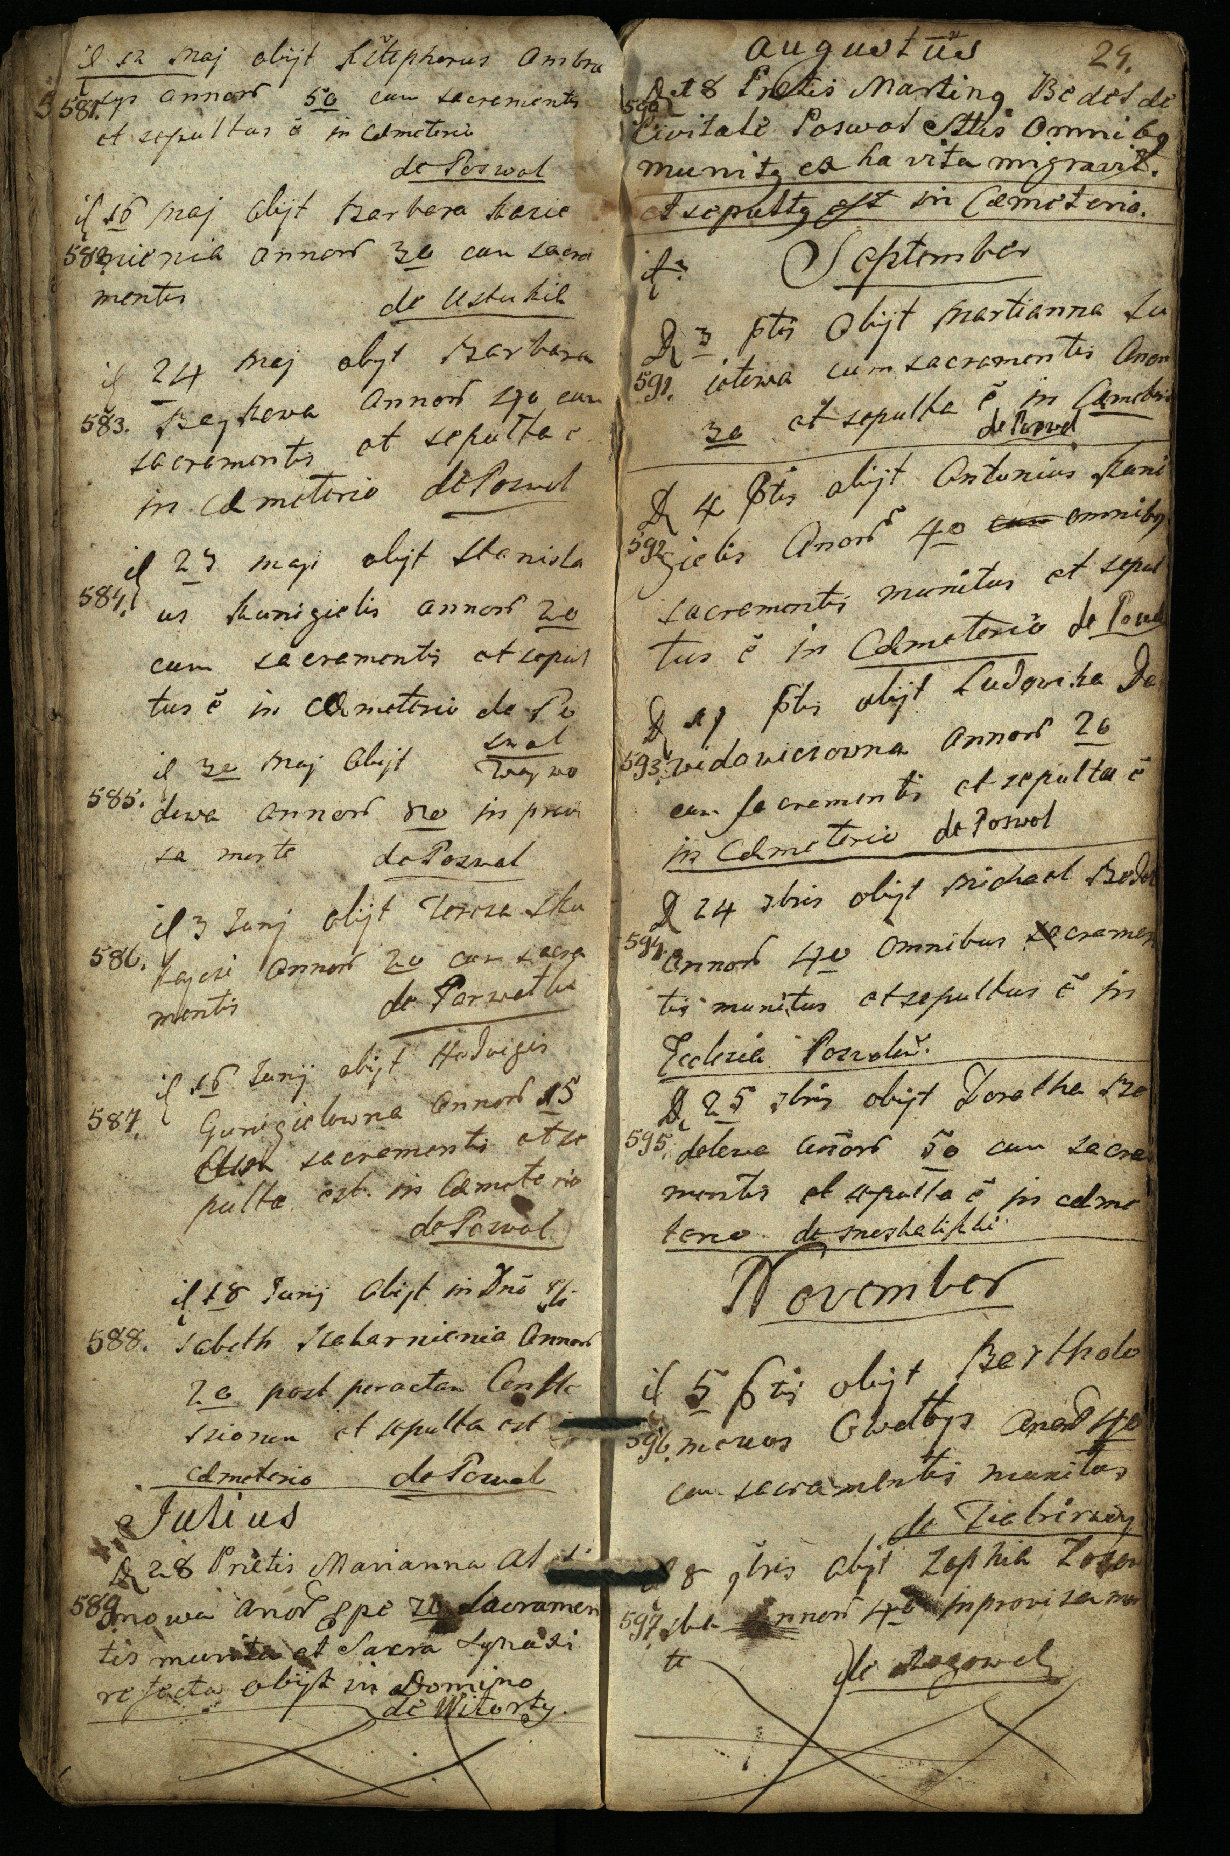 il 12 Maj obijt Kristpherus Ambra
581. sys annorũ 50 cum sacramentis
et sepultus ẽ in Cæmeterio
de Poswol
il 16 Maj obijt Barbara
582. annorũ 30 cum sacra
mentis de Ustukie
il 24 Maj obijt Barbara
583. annorũ 40 cum
sacramentis et sepulta ẽ
in Cæmeterio de Poswol
il 23 Maji obijt Stanisla
584. us Kunigielis annorũ 20
cum sacramentis et sepul
tus ẽ in Cæmeterio de Po
swol
il 30 Maj obijt Woywo
585. dowa annorũ 80 in provi
sa morte de Poswol
il 3 Junij obijt Teresa Sku
586. annorũ 20 cum sacra
mentis de
il 16 Junij obijt Hedvigis
587. Gunigielowna annorũ 15
sacramentis et se
pulta est in Cæmeterio
de Poswol
il 18 Junij obijt in Dnõ Eli
588. sabeth annorũ
20 post peractam Confes
sionem et sepulta est in
Cæmeterio de Poswol
Julius
D 28 Prætis Marianna
589. anorũ 20 Sacramen
tis munita et Sacra Synaxi
refecta obijt in Domino
de Witorty.
Augustus 29.
D 18 Prætis Martinq Bedel de
590. Civitate Poswol Sttis Omnibq
munitq ex ha vita migravit.
et sepultq est in Cæmeterio.
il September
D 3 ptis Obijt Martianna Lu
591. iotewa cum sacramentis Anorũ
30 et sepulta ẽ in Cæmeterio
de Poswol
D 4 ptis obijt Antonius Kuni
592. gielis Anorũ 40 cum omnibq
sacramentis munitus et sepul
tus ẽ in Cæmeterio de Poswol
D 19 ptis obijt Ludowika Da
593. widowiczowna annorũ 20
cum sacramentis et sepulta ẽ
in Cæmeterio de Poswol
D 24 7bris obijt Michael Bedel
594. annorũ 40 omnibus sacramen
tis munitus et sepultus ẽ in
Ecclesia Poswoliẽ.
D 25 7bris obijt Dorotha Be
595. delewa Anorũ 50 cum sacra
mentis et sepulta ẽ in cæme
terio de
November
il 5 ptis obijt Bartholo
596. meuos Gwelbys Anorũ 40
cum sacramentis munitus
de
D 8 9bris obijt Zophia
597. ska annorũ 40 inprovisa mor
te de Rogowel